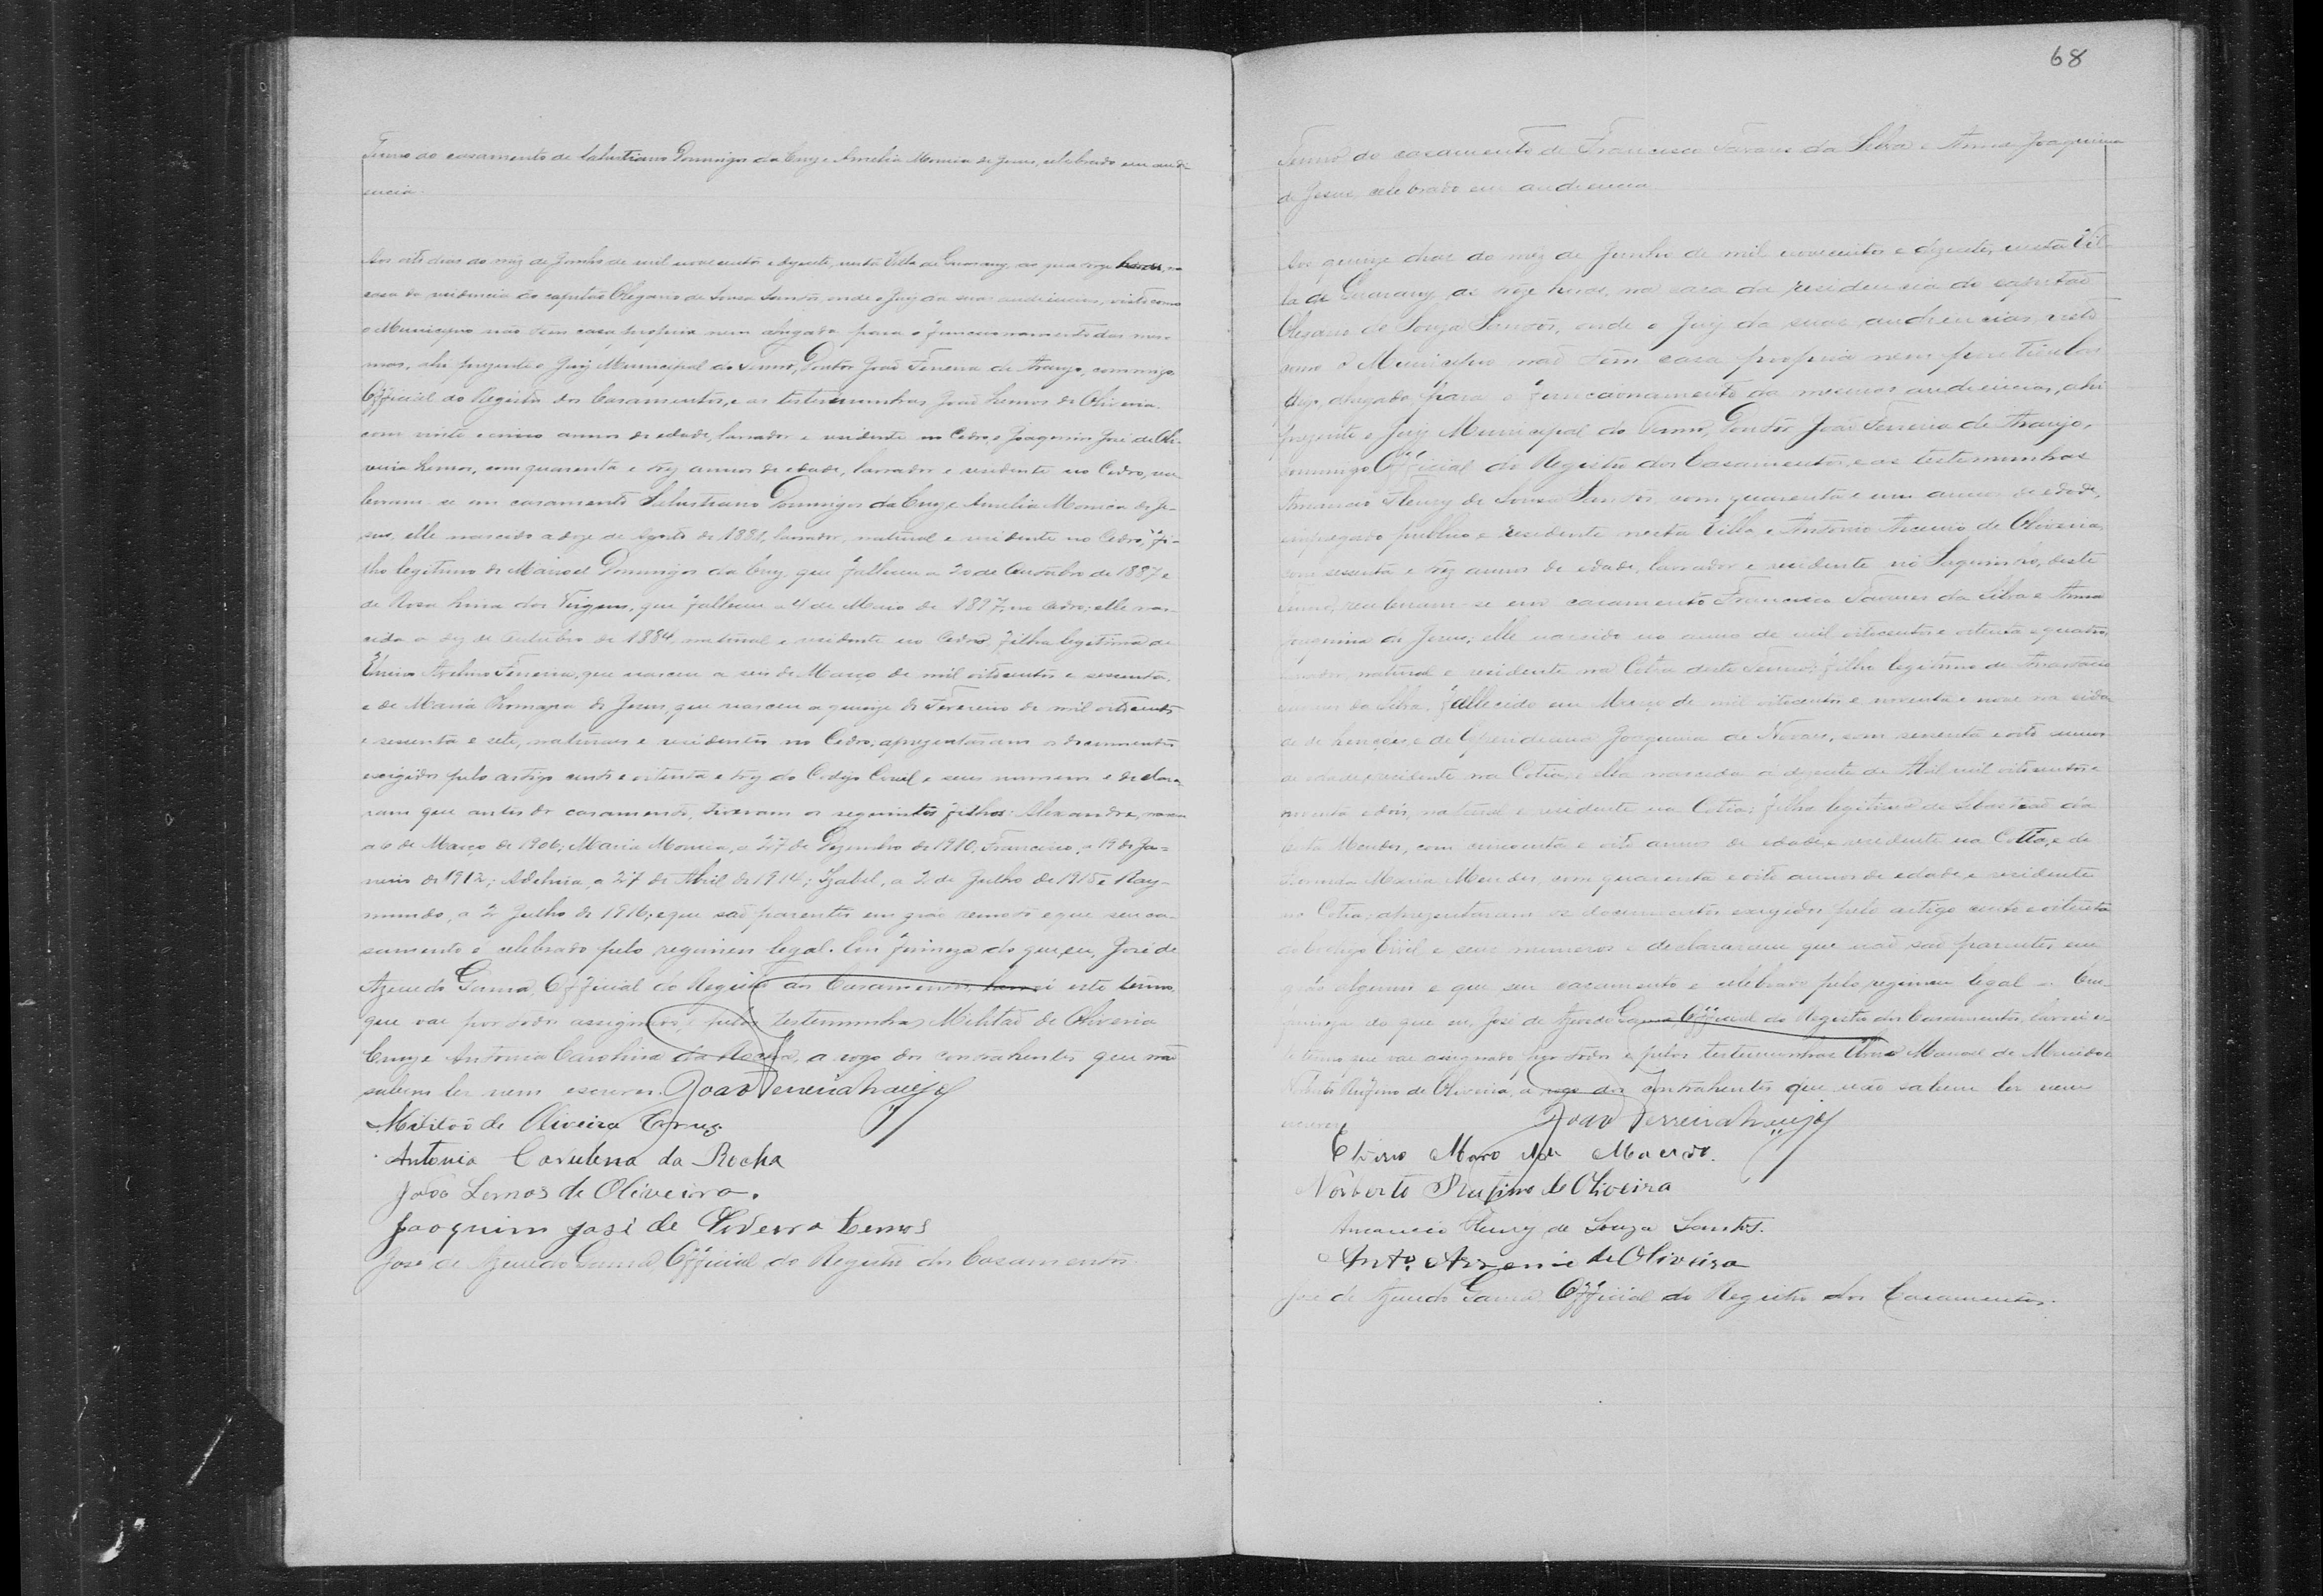 Termo do casamento de Salustiano Domingos da Cruz e Amelia Monica de Jesus, celebrado em audi-
encia.
Aos oito dias do mez de Junho de mil novecentos e dezesete, nesta Villa de Guarany, as quatorze horas, na
casa da residencia do capitão Olegario de Sousa Santos, onde o Juiz da suas audiencias, visto como
o Municipio não tem casa propria nem alugada para o funccionamento das mes-
mas, ahi prezente o Juiz Municipal do Termo, Doutor João Ferreira de Araujo, commigo
Official do Registro dos Casamentos, e as testemunhas João Lemos de Oliveira
com vinte e cinco annos de edade, lavrador e residente no Cedro, e Joaquim José de Oli-
veira Lemos, com quarenta e trez annos de edade, lavrador e residente no Cedro, rec
beram-se em casamento Salustiano Domingos da Cruz e Amelia Monica de Je-
sus, elle nascido a doze de Agosto de 1881, lavrador, natural e residente no Cedro, fi-
lho legitimo de Manoel Domingos da Cruz, que falleceu a 20 de Outubro de 1887 e
de Rosa Lina das Virgens, que falleceu a 4 de Maio de 1897, no Cedro; ella nas-
cida a dez de Outubro de 1884, natural e residente no Cedro, filha legitima de
Avelino Ferreira, que nasceu a seis de Março de mil oitocentos e sessenta,
e de Maria Romana de Jesus, que nasceu a quinze de Fevereiro de mil oitocentos
e sessenta e sete, naturaes e residentes no Cedro; aprezentaram os documentos
exigidos pelo artigo cento e oitenta e trez do Codigo Civil e seus numeros e declara-
ram que antes do casamento, tiveram os seguintes filhos: Alexandre, nasceu
a 6 de Março de 1906; Maria Monica, a 27 de Dezembro de 1910; Francisco, a 19 de Ja-
neiro de 1912; Adelina, a 27 de Abril de 1914; Izabel, a 2 de Julho de 1915 e Ray-
mundo, a 2 Julho de 1916; e que são parentes em gráo remoto e que seu ca-
samento é celebrado pelo regimen legal. Em firmeza do que, eu, José de
Azevedo Gama, Official do Registro dos Casamentos, lavrei este termo,
que vae por todos assignado, e pelas testemunhas Militão de Oliveira
Cruz e Antonia Carolina da Rocha, a rogo dos contrahentes que não
sabem ler nem escrever. João Ferreira Araujo
Militão de Oliveira Cruz
Antonia Carulina da Rocha
João Lemos de Oliveira.
Joaquim José de Oliveira Lemos
José de Azevedo Gama, Official do Registro dos Casamentos.
68
Termo do casamento de Francisco Tavares da Silva e Anna Joaquina
de Jesus, celebrado em audiencia
Aos quinze dias do mez de Junho de mil novecentos e dezesete, nesta Vil-
la de Guarany, as treze horas, na casa da residencia do capitão
Olegario de Souza Santos, onde o Juiz da suas audiencias, visto
como o Municipio não tem casa propria nem particular
alugada para o funccionamento das mesmas audiencias, ahi
prezente o Juiz Municipal do Termo, Doutor João Ferreira de Araujo,
commigo Official do Registro dos Casamentos, e as testemunhas
Amancio Fleury de Sousa Santos, com quarenta e um annos de edade,
empregado publico e residente nesta Villa, e Antonio Arcenio de Oliveira,
com sessenta e trez annos de edade, lavrador e residente no deste
Termo, receberam-se em casamento Francisco Tavares da Silva e Anna
Joaquina de Jesus; elle nascido no anno de mil oitocentos e oitenta e quatro,
lavrador, natural e residente na Cotia deste Termo, filho legitimo de
Tavares da Silva, fallecido em Março de mil oitocentos e noventa e nove na cida
de de Lençoes, e de Joaquina de Novaes, com sessenta e oito annos
de edade, residente na Cotia, e ella nascida a dezesete de Abril mil oitocentos e
noventa e dois, natural e residente na Cotia; filha legitima de Sebastião da
Mendes, com cincoenta e oito annos de edade, e residente na Cotia, e de
Maria Mendes, com quarenta e oito annos de edade, e residente
na Cotia; aprezentaram os documentos exigidos pelo artigo cento e oitenta
do Codigo Civil e seus numeros e declararam que não são parentes em
gráo algum e que seu casamento é celebrado pelo regimen legal. Em
firmeza do que eu, José de Azevedo Gama, Official do Registro dos Casamentos, lavrei es-
te termo que vae assignado por todos e pelas testemunhas Manoel de Macedo e
Rufino de Oliveira, a rogo dos contrahentes que não sabem ler nem
escrever. João Ferreira Araujo
Macedo.
Norberto Rufino de Oliveira
Amancio Fleury de Souza Santos.
Anto. Arsenio de Oliveira
José de Azevedo Gama, Official do Registro dos Casamentos.